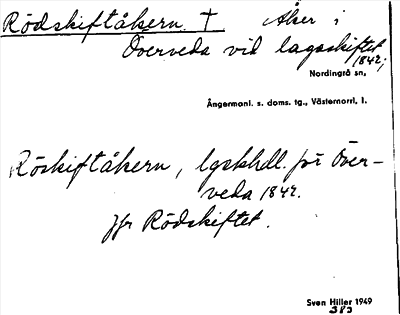 Rödskiftåkern † Åker i
Överveda vid lagaskiftet
1842;
Nordingrå sn,
Ångermanl. s. doms. tg., Västernorrl. l.
Röskiftåkern, lgskhdl. för Över-
veda 1842.
Jfr Rödskiftet.
Sven Hiller 1949
383